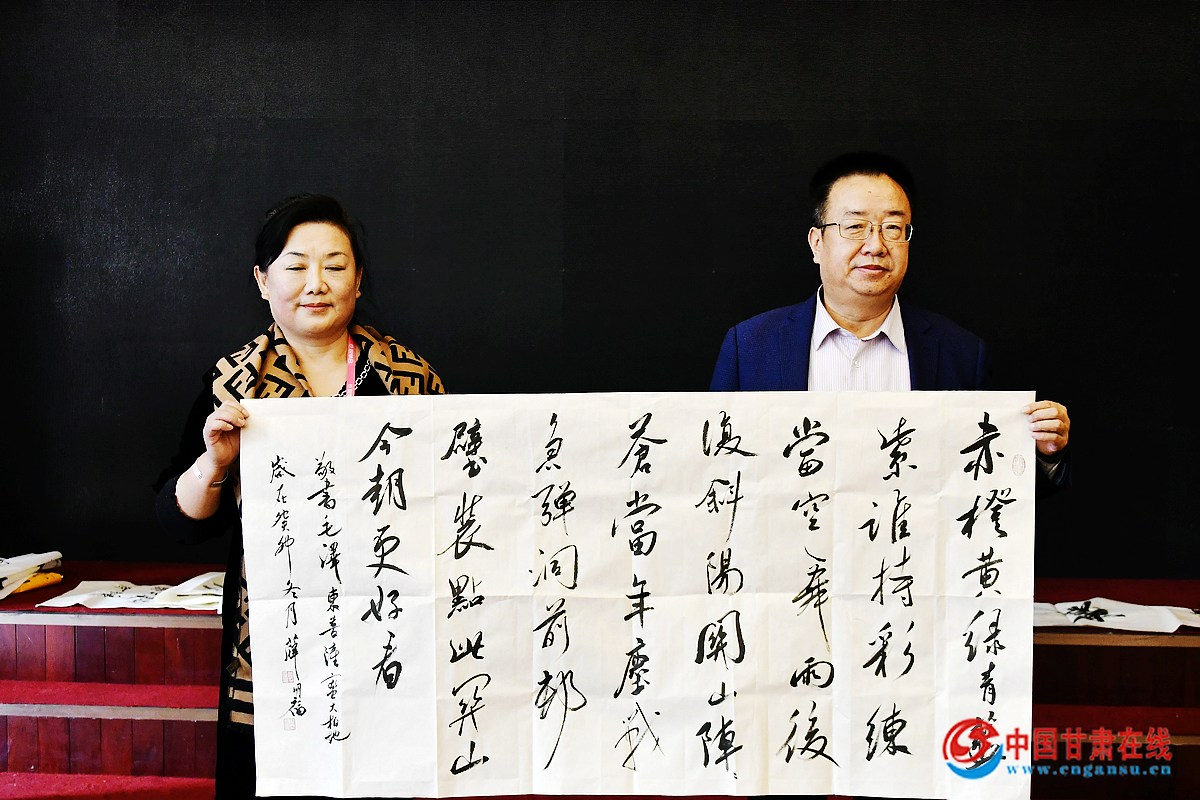 赤橙黄緑青藍
紫誰持彩練
當空舞雨後
復斜陽關山陣々
蒼當年鏖戰
急彈洞前邨
壁裝點此関山
今朝更好看
敬書毛澤東菩薩蛮大柏地
歲在癸卯冬月薛
中国甘肃在线
www.cngansu.cn